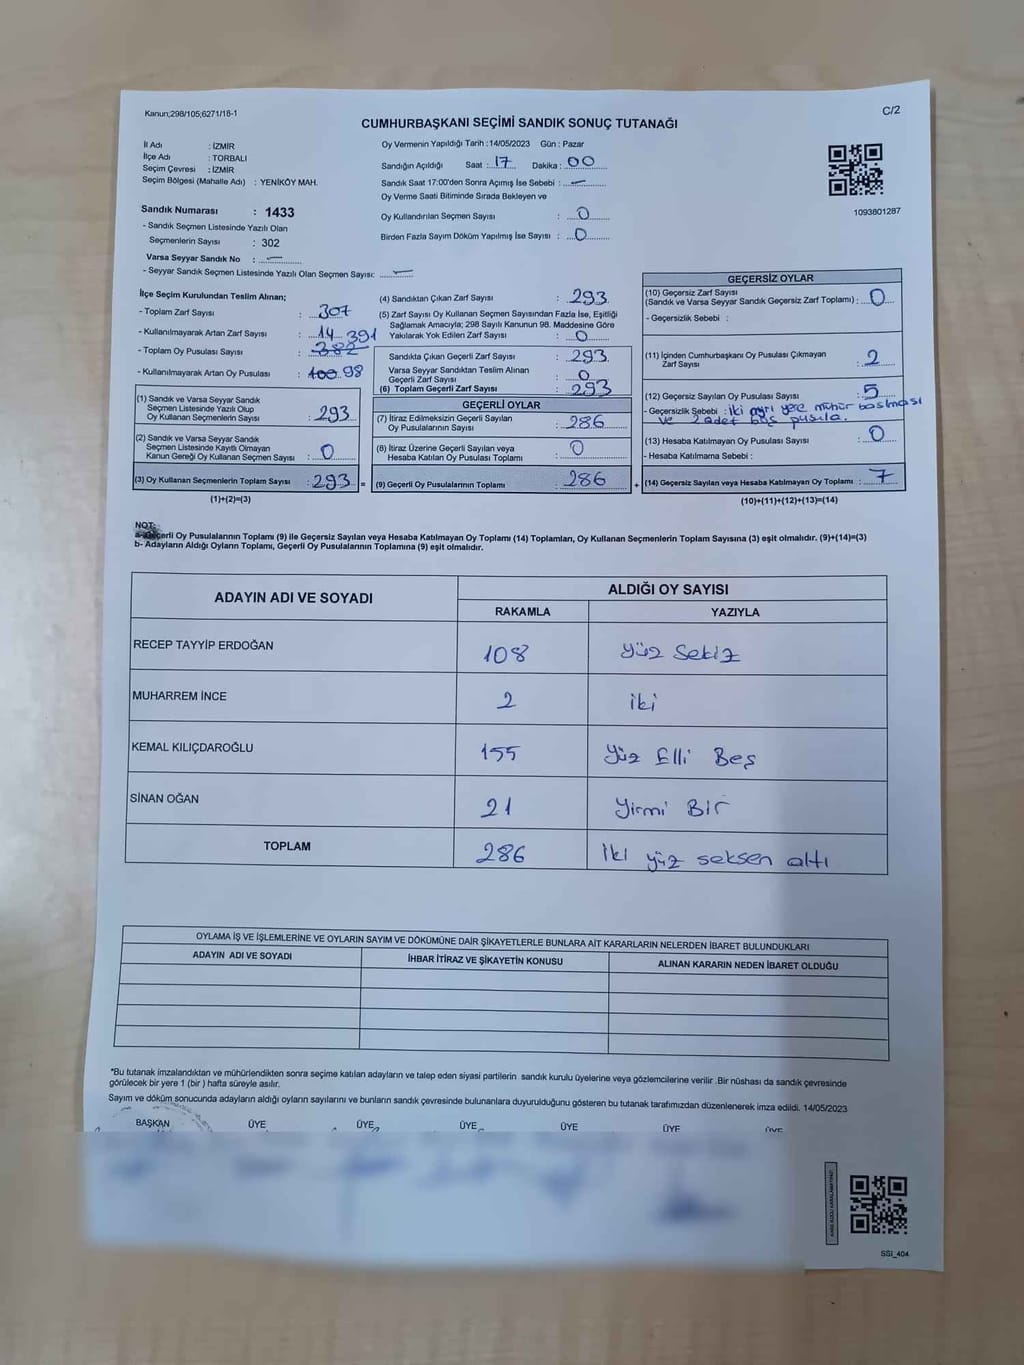 Kanun;298/105;6271/18-1
C/2
CUMHURBAŞKANI SEÇİMİ SANDIK SONUÇ TUTANAĞI
İl Adı : İZMİR
İlçe Adı : TORBALI
Seçim Çevresi : İZMİR
Seçim Bölgesi (Mahalle Adı) : YENİKÖY MAH.
Oy Vermenin Yapıldığı Tarih :14/05/2023 Gün : Pazar
Sandığın Açıldığı Saat : 17 Dakika : 00
Sandık Saat 17:00'den Sonra Açımış İse Sebebi : —
Oy Verme Saati Bitiminde Sırada Bekleyen ve
Oy Kullandırılan Seçmen Sayısı : 0
Birden Fazla Sayım Döküm Yapılmış İse Sayısı : 0
1093801287
Sandık Numarası : 1433
- Sandık Seçmen Listesinde Yazılı Olan
Seçmenlerin Sayısı : 302
Varsa Seyyar Sandık No : —
- Seyyar Sandık Seçmen Listesinde Yazılı Olan Seçmen Sayısı: —
İlçe Seçim Kurulundan Teslim Alınan;
- Toplam Zarf Sayısı : 307
- Kullanılmayarak Artan Zarf Sayısı : 14
- Toplam Oy Pusulası Sayısı : 382 391
- Kullanılmayarak Artan Oy Pusulası : 100 98
(1) Sandık ve Varsa Seyyar Sandık
Seçmen Listesinde Yazılı Olup
Oy Kullanan Seçmenlerin Sayısı : 293
(2) Sandık ve Varsa Seyyar Sandık
Seçmen Listesinde Kayıtlı Olmayan
Kanun Gereği Oy Kullanan Seçmen Sayısı : 0
(3) Oy Kullanan Seçmenlerin Toplam Sayısı : 293 =
(1)+(2)=(3)
(4) Sandıktan Çıkan Zarf Sayısı : 293
(5) Zarf Sayısı Oy Kullanan Seçmen Sayısından Fazla İse, Eşitliği
Sağlamak Amacıyla; 298 Sayılı Kanunun 98. Maddesine Göre
Yakılarak Yok Edilen Zarf Sayısı : 0
Sandıkta Çıkan Geçerli Zarf Sayısı : 293
Varsa Seyyar Sandıktan Teslim Alınan
Geçerli Zarf Sayısı : 0
(6) Toplam Geçerli Zarf Sayısı : 293
GEÇERLİ OYLAR
(7) İtiraz Edilmeksizin Geçerli Sayılan
Oy Pusulalarının Sayısı : 286
(8) İtiraz Üzerine Geçerli Sayılan veya
Hesaba Katılan Oy Pusulası Toplamı : 0
(9) Geçerli Oy Pusulalarının Toplamı : 286 +
GEÇERSİZ OYLAR
(10) Geçersiz Zarf Sayısı
(Sandık ve Varsa Seyyar Sandık Geçersiz Zarf Toplamı) : 0
- Geçersizlik Sebebi :
(11) İçinden Cumhurbaşkanı Oy Pusulası Çıkmayan
Zarf Sayısı : 2
(12) Geçersiz Sayılan Oy Pusulası Sayısı : 5
- Geçersizlik Sebebi : İki ayrı yere mühür basılması
ve 2 adet boş pusula.
(13) Hesaba Katılmayan Oy Pusulası Sayısı : 0
- Hesaba Katılmama Sebebi :
(14) Geçersiz Sayılan veya Hesaba Katılmayan Oy Toplamı : 7
(10)+(11)+(12)+(13)=(14)
NOT:
a- Geçerli Oy Pusulalarının Toplamı (9) ile Geçersiz Sayılan veya Hesaba Katılmayan Oy Toplamı (14) Toplamları, Oy Kullanan Seçmenlerin Toplam Sayısına (3) eşit olmalıdır. (9)+(14)=(3)
b- Adayların Aldığı Oyların Toplamı, Geçerli Oy Pusulalarının Toplamına (9) eşit olmalıdır.
ADAYIN ADI VE SOYADI
ALDIĞI OY SAYISI
RAKAMLA YAZIYLA
RECEP TAYYİP ERDOĞAN 108 Yüz Sekiz
MUHARREM İNCE 2 İki
KEMAL KILIÇDAROĞLU 155 Yüz Elli Beş
SİNAN OĞAN 21 Yirmi Bir
TOPLAM 286 İki yüz seksen altı
OYLAMA İŞ VE İŞLEMLERİNE VE OYLARIN SAYIM VE DÖKÜMÜNE DAİR ŞİKAYETLERLE BUNLARA AİT KARARLARIN NELERDEN İBARET BULUNDUKLARI
ADAYIN ADI VE SOYADI İHBAR İTİRAZ VE ŞİKAYETİN KONUSU ALINAN KARARIN NEDEN İBARET OLDUĞU
*Bu tutanak imzalandıktan ve mühürlendikten sonra seçime katılan adayların ve talep eden siyasi partilerin sandık kurulu üyelerine veya gözlemcilerine verilir .Bir nüshası da sandık çevresinde
görülecek bir yere 1 (bir ) hafta süreyle asılır.
Sayım ve döküm sonucunda adayların aldığı oyların sayılarını ve bunların sandık çevresinde bulunanlara duyurulduğunu gösteren bu tutanak tarafımızdan düzenlenerek imza edildi. 14/05/2023
BAŞKAN ÜYE ÜYE ÜYE ÜYE ÜYE ÜYE
SSI_404